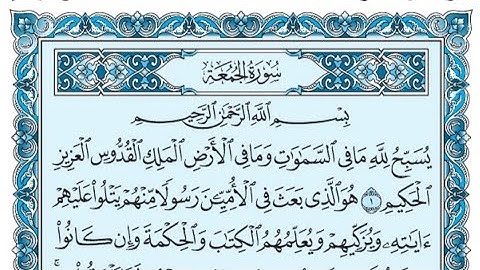 سُورَةُ الْجُمُعَةِ
بِسْمِ اللَّهِ الرَّحْمَٰنِ الرَّحِيمِ
يُسَبِّحُ لِلَّهِ مَا فِي السَّمَٰوَٰتِ وَمَا فِي الْأَرْضِ الْمَلِكِ الْقُدُّوسِ الْعَزِيزِ
الْحَكِيمِ ١ هُوَ الَّذِي بَعَثَ فِي الْأُمِّيِّـۧنَ رَسُولًا مِّنْهُمْ يَتْلُوا۟ عَلَيْهِمْ
ءَايَٰتِهِۦ وَيُزَكِّيهِمْ وَيُعَلِّمُهُمُ الْكِتَٰبَ وَالْحِكْمَةَ وَإِن كَانُوا۟